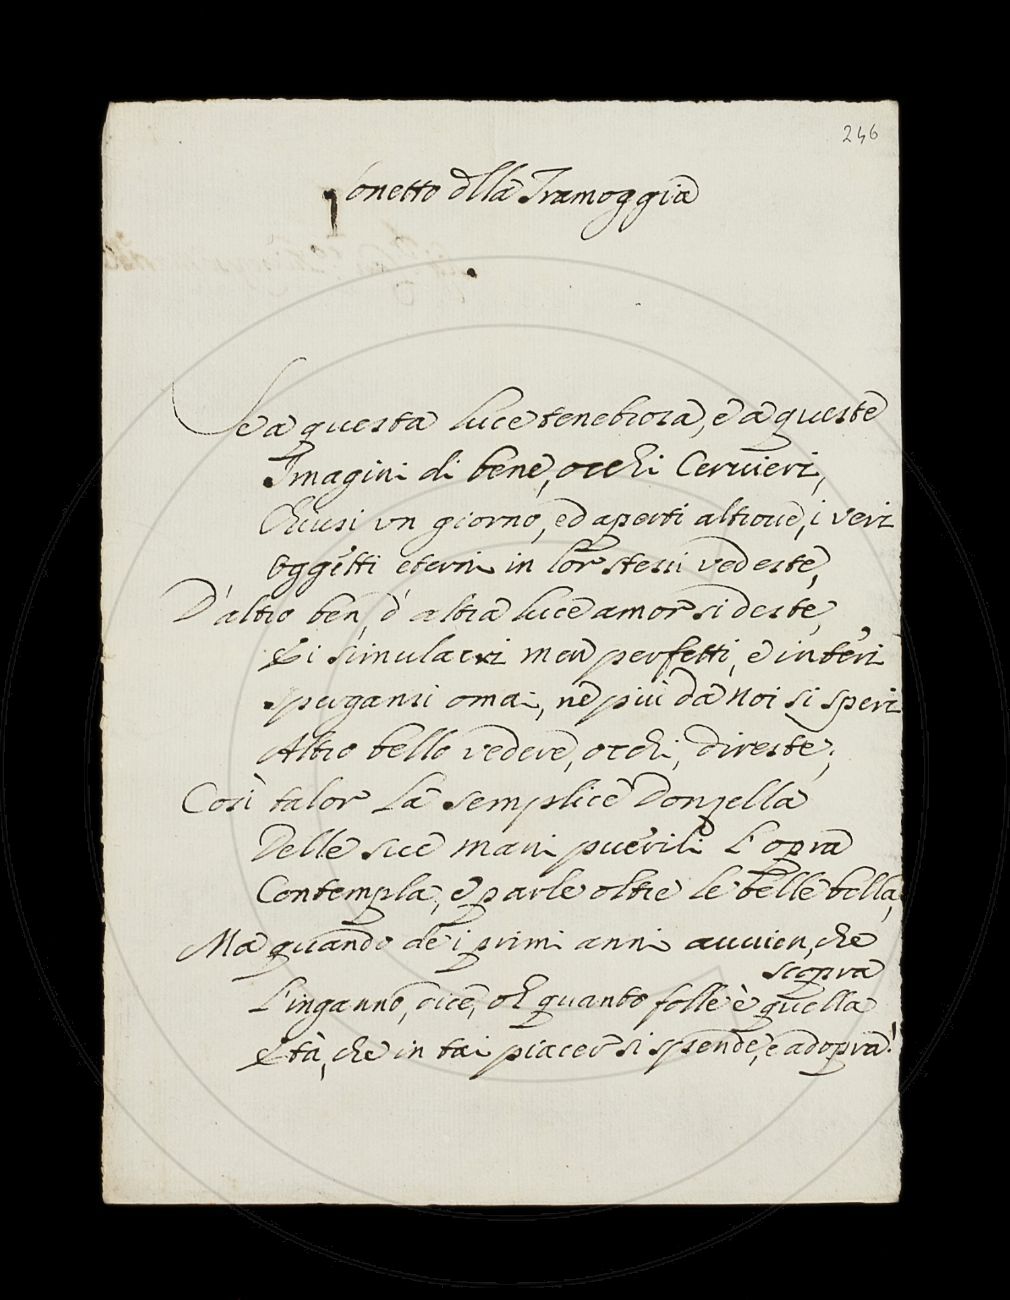 246
Sonetto dlla Tramoggia
Se a questa luce tenebrosa, e a queste
Imagini di bene, occhi Cervieri,
Chiusi un giorno, ed aperti altroue, i veri
Oggetti eterni in lor stessi vedeste,
D'altro ben, d'altra luce amor si deste,
E i simulacri men perfetti, e interi
spregiansi omai, ne piu da noi si speri
Altro bello vedere, occhi, direste;
Così talor la semplice Donzella
Delle sue mani puerili l'opra
Contempla, e parle oltre le belle bella,
Ma quando de i primi anni auuien, che
scopra
L'inganno, dice, oh quanto folle è quella
Età, che in tai piacer si spende, e adopra!